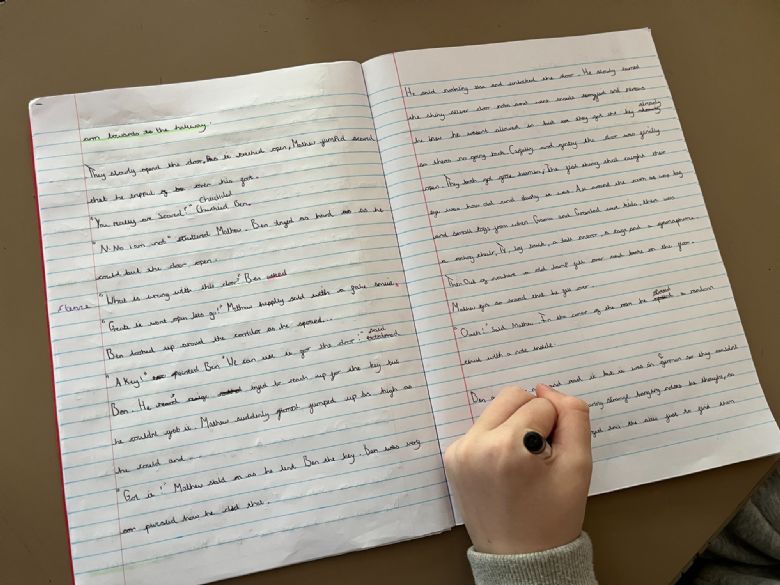 arm towards to the hallway.
They slowly opend the door, Ben is rushed open, Mathew jumped scared
that he triped of to over his foot.
chuckled
"You really are Scared!" Chuckled Ben.
"N-No i am not" stuttered Mathew. Ben tryed so hard so as he
could but the door open.
"What is wrong with this door?" Ben asked
"Great it wont open lets go!" Mathew happily said with a fake smile,
Ben looked up around the corridor as he spoted...
"A Key!" pointed Ben "We can use it for the door!" said exclaimed
Ben. He tryed to reach up for the key but
he couldnt get it. Mathew suddenly jumped up as high as
he could and...
"Got it!" Mathew said as he lent Ben the key. Ben was very
puzzled how he did that.
He said nothing and unlocked the door. He slowly turned
the shiny silver door nobe and were inside and nervous
already
he knew he wasnt allowed in but as they got the key
so theres no going back. Carfully and gently the door was finally
open. They both got goose bumbs, The fist thing that caught their
eye was how old and dusty it was. As around the room as was big
and small toys from when Groma and Grandad were kids, there was
a rocking chair, TV, toy truck, a tall mirror, a rug and a gramophone.
Then Out of nowhere a old fell over and broke on the floor.
Mathew got so scared that he fell over.
"Ouch!" Said Mathew. In the corner of the room he a random
chest with a note inside.
Ben and it but it was in German so they couldnt
strange he thought, so
the attic just to find them